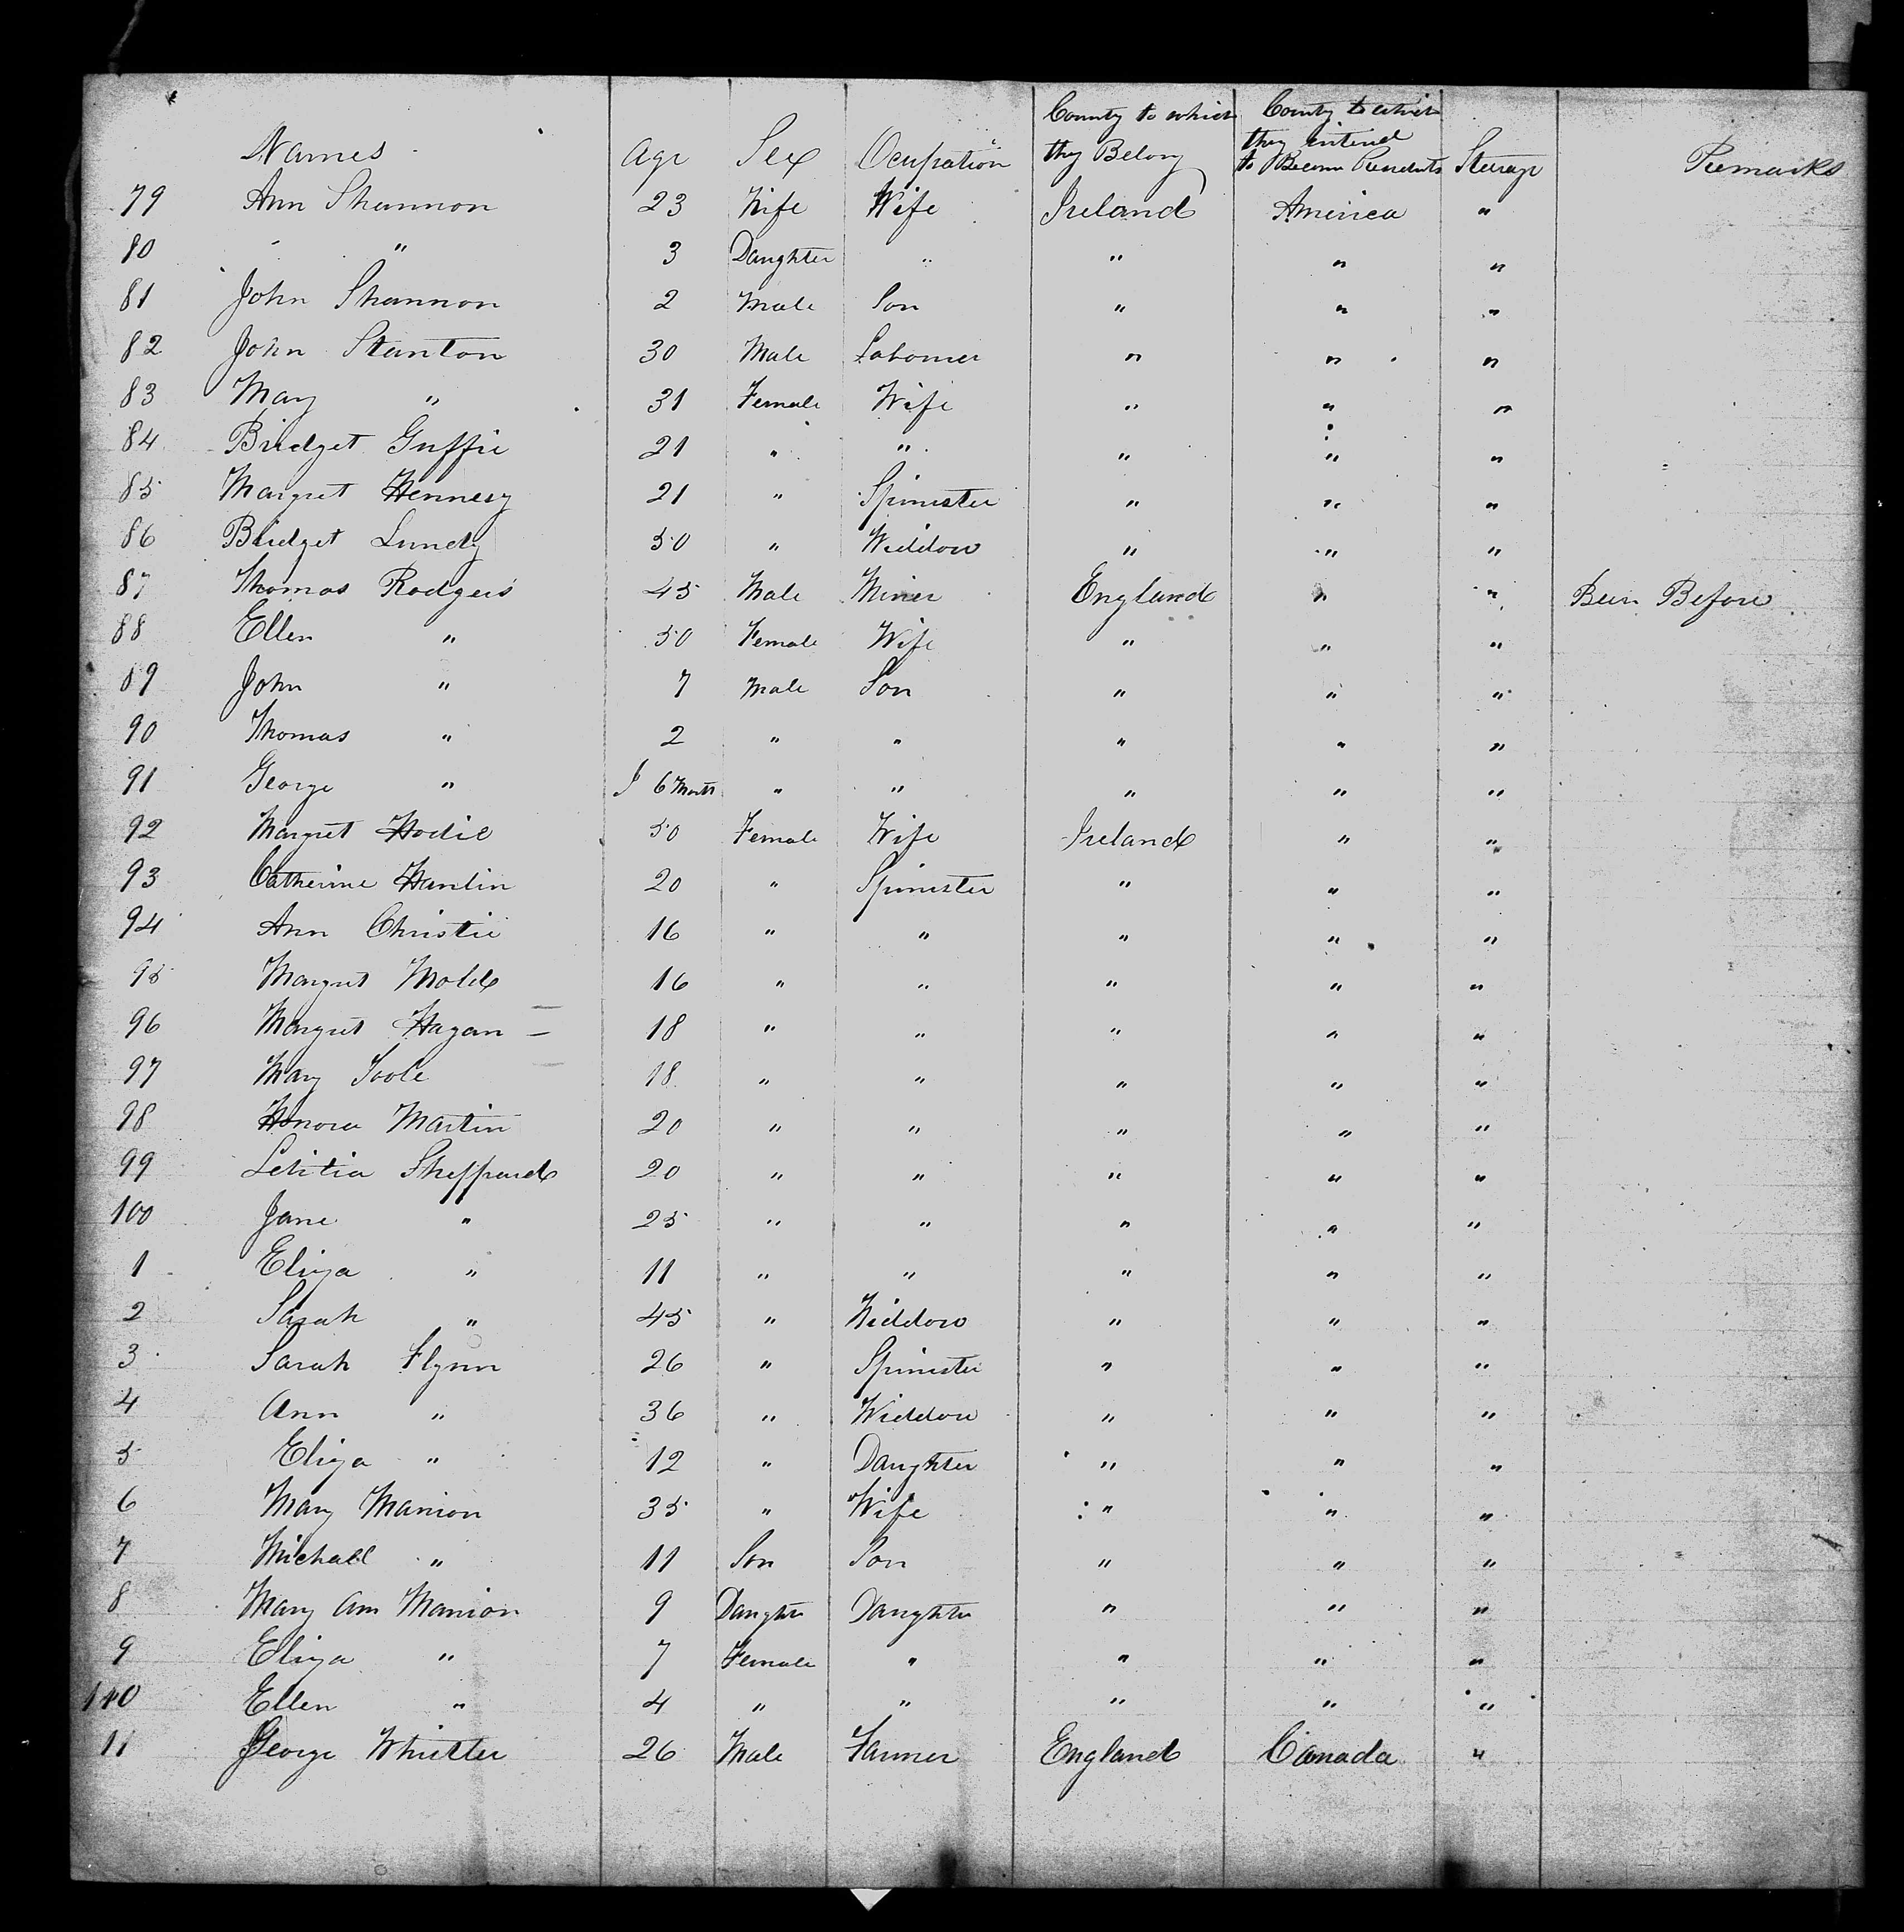 Names Age Sex Ocupation County to which they Belong County to which they intend to Become Residents Sterage Remarks
79 Ann Shannon 23 Wife Wife Ireland America "
80 " " 3 Daughter " " " "
81 John Shannon 2 Male Son " " "
82 John Stanton 30 Male Labourer " " "
83 Mary " 31 Female Wife " " "
84 Bridget Guffie 21 " " " " "
85 Margret Hennesy 21 " Spinister " " "
86 Bridget Lundy 50 " Widdow " " "
87 Thomas Rodgers 45 Male Miner England " " Been Before
88 Ellen " 50 Female Wife " " "
89 John " 7 Male Son " " "
90 Thomas " 2 " " " " "
91 George " 6 Month " " " " "
92 Margret 50 Female Wife Ireland " "
93 Catherine Hanlin 20 " Spinister " " "
94 Ann Christie 16 " " " " "
95 Margret 16 " " " " "
96 Margret Hagan — 18 " " " " "
97 Mary Toole 18 " " " " "
98 Honora Martin 20 " " " " "
99 Letitia Sheppard 20 " " " " "
100 Jane " 25 " " " " "
1 Eliza " 11 " " " " "
2 Sarah " 45 " Widdow " " "
3 Sarah Flynn 26 " Spinister " " "
4 Ann " 36 " Widdow " " "
5 Eliza " 12 " Daughter " " "
6 Mary Manion 35 " Wife " " "
7 Michall " 11 Son Son " " "
8 Mary Ann Manion 9 Daughter Daughter " " "
9 Eliza " 7 Female " " " "
110 Ellen " 4 " " " " "
11 George Whistler 26 Male Farmer England Canada "